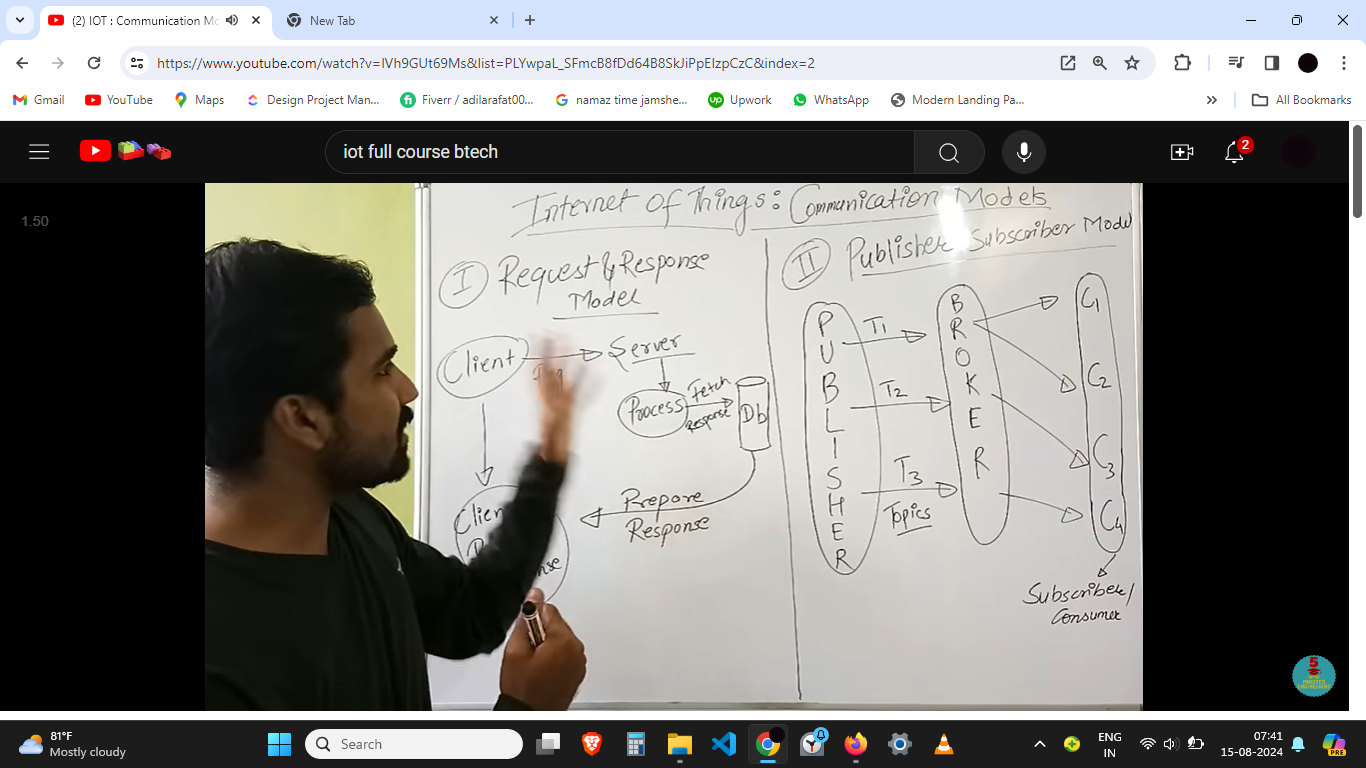 (2) IOT : Communication Mo
New Tab
https://www.youtube.com/watch?v=IVh9GUt69Ms&list=PLYwpaL_SFmcB8fDd64B8SkJiPpEIzpCzC&index=2
Gmail
YouTube
Maps
Design Project Man...
Fiverr / adilarafat00...
namaz time jamshe...
Upwork
WhatsApp
Modern Landing Pa...
All Bookmarks
iot full course btech
2
1.50
Internet Of Things: Communication Models
I Request & Response
Model
Client
Server
Process
Fetch
Response
Db
Prepare
Response
Client
II Publisher Subscriber Model
PUBLISHER
T1
T2
T3
Topics
BROKER
C1
C2
C3
C4
Subscriber/
Consumer
5
81°F
Mostly cloudy
Search
ENG
IN
07:41
15-08-2024
PRE